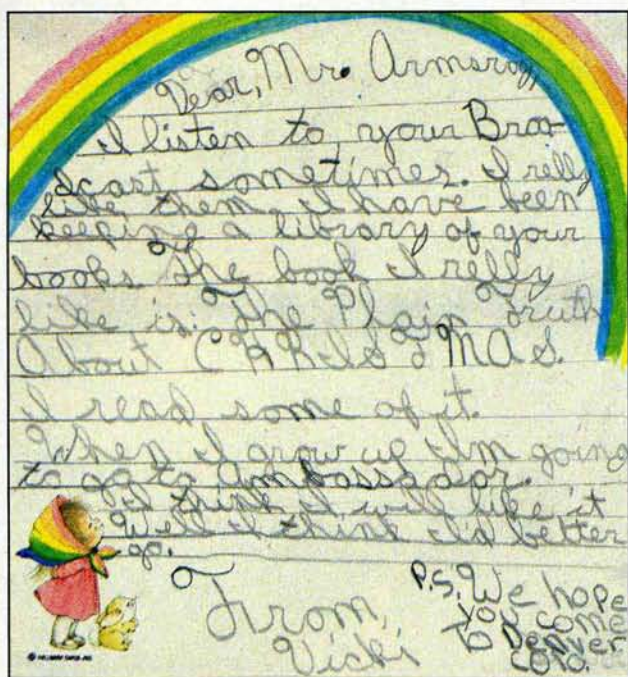 Dear, Mr. Armsrog,
I listen to your Broa
dcast sometimes. I relly
like them. I have been
keeping a library of your
books. The book I relly
like is: The Plain Truth
About CHRISTMAS.
I read some of it.
When I grow up I'm going
to go to Ambassador.
I think I will like it
Well I think I'd better
go.
From,
Vicki
P.S. We hope
you come
To Denver
Colo.